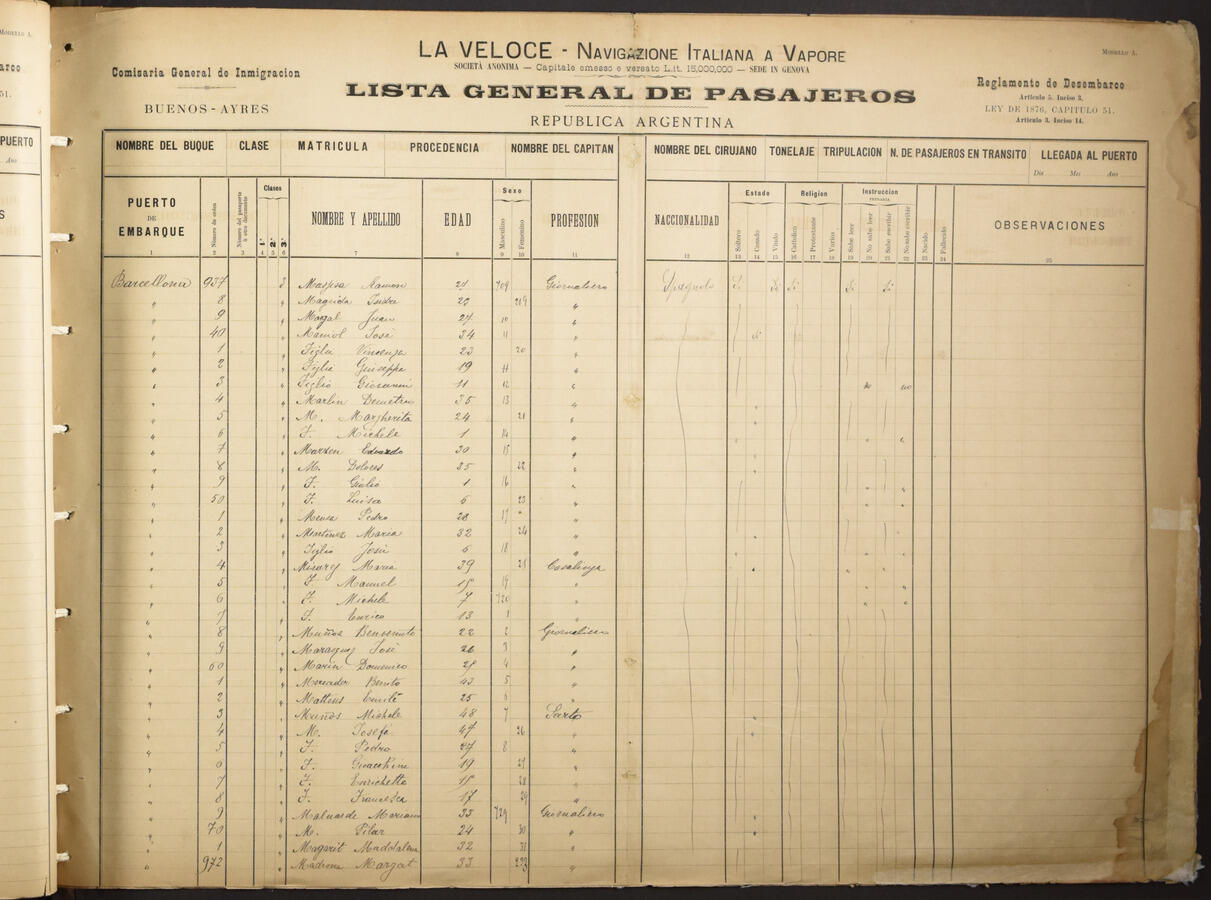 MODELLO A.
LA VELOCE - NAVIGAZIONE ITALIANA A VAPORE
MODELLO A.
SOCIETÀ ANONIMA — Capitale emesso e versato L.it. 15,000,000 — SEDE IN GENOVA
Comisaria General de Inmigracion
BUENOS-AYRES
LISTA GENERAL DE PASAJEROS
REPUBLICA ARGENTINA
Reglamento de Desembarco
Artículo 5. Inciso 3.
LEY DE 1876, CAPITULO 51.
Artículo 3. Inciso 14.
NOMBRE DEL BUQUE CLASE MATRICULA PROCEDENCIA NOMBRE DEL CAPITAN NOMBRE DEL CIRUJANO TONELAJE TRIPULACION N. DE PASAJEROS EN TRANSITO LLEGADA AL PUERTO
Dia Mes Ano
PUERTO DE EMBARQUE Número de orden Clases 1ª 2ª 3ª NOMBRE Y APELLIDO EDAD Sexo Masculino Femenino PROFESION NACCIONALIDAD Estado Soltero Casado Viudo Religion Catolico Protestante Varios Instruccion PRIMARIA Sabe leer No sabe leer Sabe escribir No sabe escribir Nacido Fallecido OBSERVACIONES
1 2 3 4 5 6 7 8 9 10 11 12 13 14 15 16 17 18 19 20 21 22 23 24 25
Barcellona 937 3 Ramon 24 709 Giornaliero Spagnolo Si Si Si Si
" 8 " 23 219 "
" 9 " Juan 24 10 "
" 40 " José 34 11 "
" 1 " Figlia Vincenza 23 20 "
" 2 " Figlio Giuseppe 19 11 "
" 3 " Figlio Giovanni 11 12 " no no
" 4 " Marlin Demetrio 35 13 "
" 5 " M. Margherita 24 21 "
" 6 " F. Michele 1 14 "
" 7 " Eduardo 30 15 "
" 8 " M. Dolores 35 22 "
" 9 " F. Giulio 1 16 "
" 50 " F. Luisa 6 23 "
" 1 " Pedro 28 17 "
" 2 " Martinez Maria 32 24 "
" 3 " Figlio José 6 18 "
" 4 " Maria 39 25 Casalinga
" 5 " F. Manuel 15 19 "
" 6 " F. Michele 7 720 "
" 7 " F. Enrico 13 1 "
" 8 " Muños Benvenuto 22 2 Giornaliero
" 9 " José 26 3 "
" 60 " Marin Domenico 28 4 "
" 1 " Mercader Benito 43 5 "
" 2 " 25 6 "
" 3 " Muños Michele 48 7 Sarto
" 4 " M. Josefa 47 26 "
" 5 " F. Pedro 27 8 "
" 6 " F. Gioacchino 19 27 "
" 7 " F. Enrichetta 15 28 "
" 8 " F. Francesca 17 29 "
" 9 " Mariano 33 729 Giornaliero
" 70 " M. Pilar 24 30 "
" 1 " Magarit Maddalena 32 31 "
" 972 " Madrona Margat 33 "